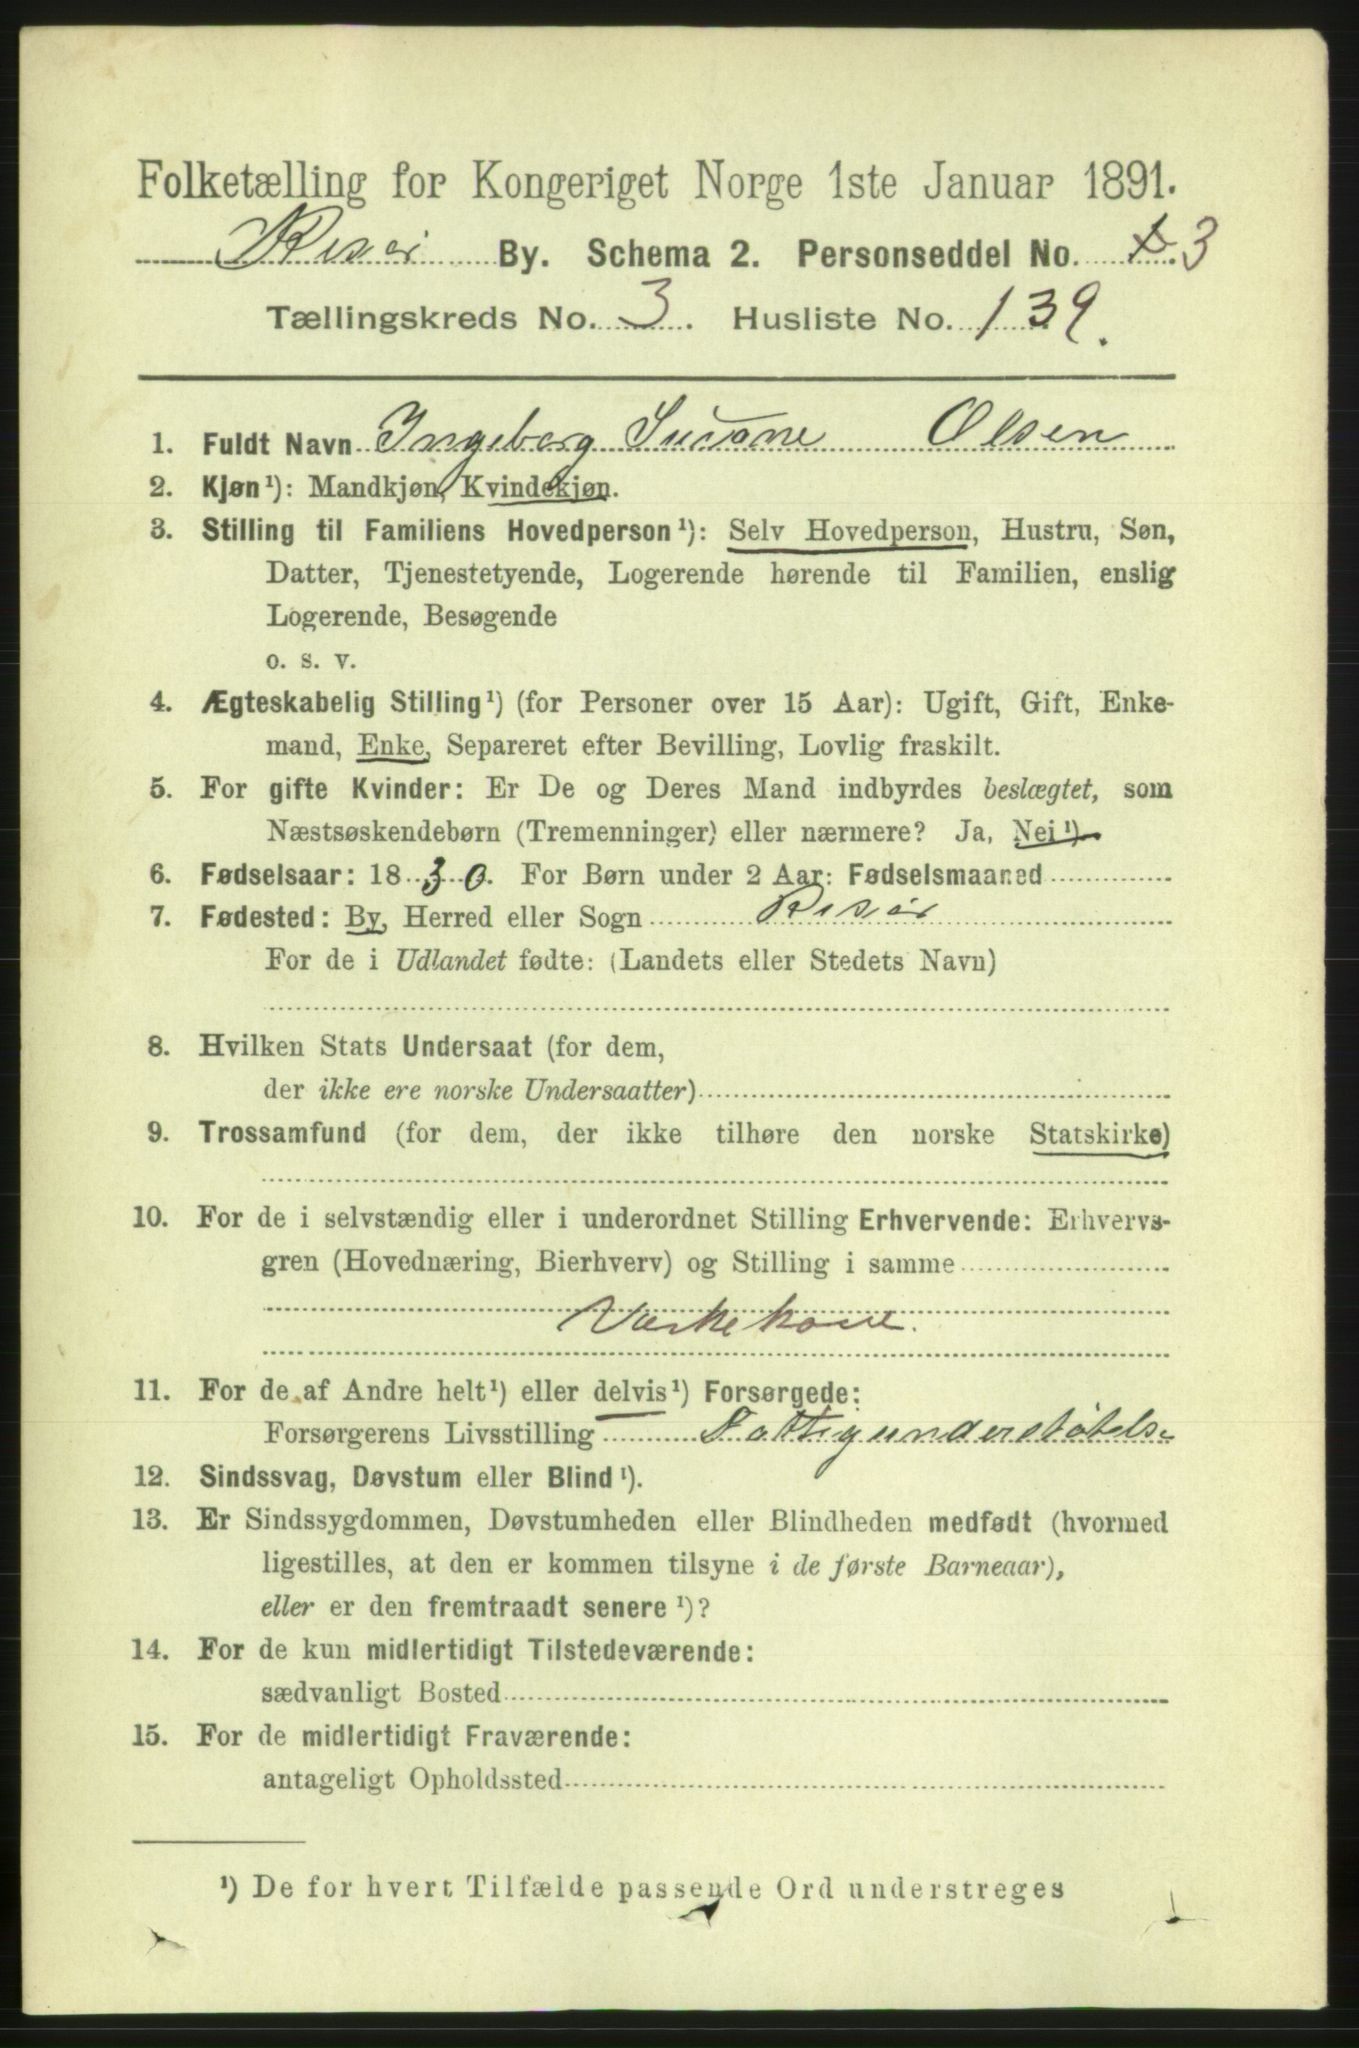 Folketælling for Kongeriget Norge 1ste Januar 1891.
Risør By. Schema 2. Personseddel No. 3
Tællingskreds No. 3. Husliste No. 139.
1. Fuldt Navn Ingeborg Susane Olsen
2. Kjøn¹): Mandkjøn, Kvindekjøn.
3. Stilling til Familiens Hovedperson¹): Selv Hovedperson, Hustru, Søn,
Datter, Tjenestetyende, Logerende hørende til Familien, enslig
Logerende, Besøgende
o. s. v.
4. Ægteskabelig Stilling¹) (for Personer over 15 Aar): Ugift, Gift, Enke-
mand, Enke, Separeret efter Bevilling, Lovlig fraskilt.
5. For gifte Kvinder: Er De og Deres Mand indbyrdes beslægtet, som
Næstsøskendebørn (Tremenninger) eller nærmere? Ja, Nei¹)
6. Fødselsaar: 1830. For Børn under 2 Aar: Fødselsmaaned
7. Fødested: By, Herred eller Sogn Risør
For de i Udlandet fødte: (Landets eller Stedets Navn)
8. Hvilken Stats Undersaat (for dem,
der ikke ere norske Undersaatter)
9. Trossamfund (for dem, der ikke tilhøre den norske Statskirke)
10. For de i selvstændig eller i underordnet Stilling Erhvervende: Erhvervs-
gren (Hovednæring, Bierhverv) og Stilling i samme
Vaskekone.
11. For de af Andre helt¹) eller delvis¹) Forsørgede:
Forsørgerens Livsstilling Fattigunderstøtelse
12. Sindssvag, Døvstum eller Blind¹).
13. Er Sindssygdommen, Døvstumheden eller Blindheden medfødt (hvormed
ligestilles, at den er kommen tilsyne i de første Barneaar),
eller er den fremtraadt senere¹)?
14. For de kun midlertidigt Tilstedeværende:
sædvanligt Bosted
15. For de midlertidigt Fraværende:
antageligt Opholdssted
¹) De for hvert Tilfælde passende Ord understreges